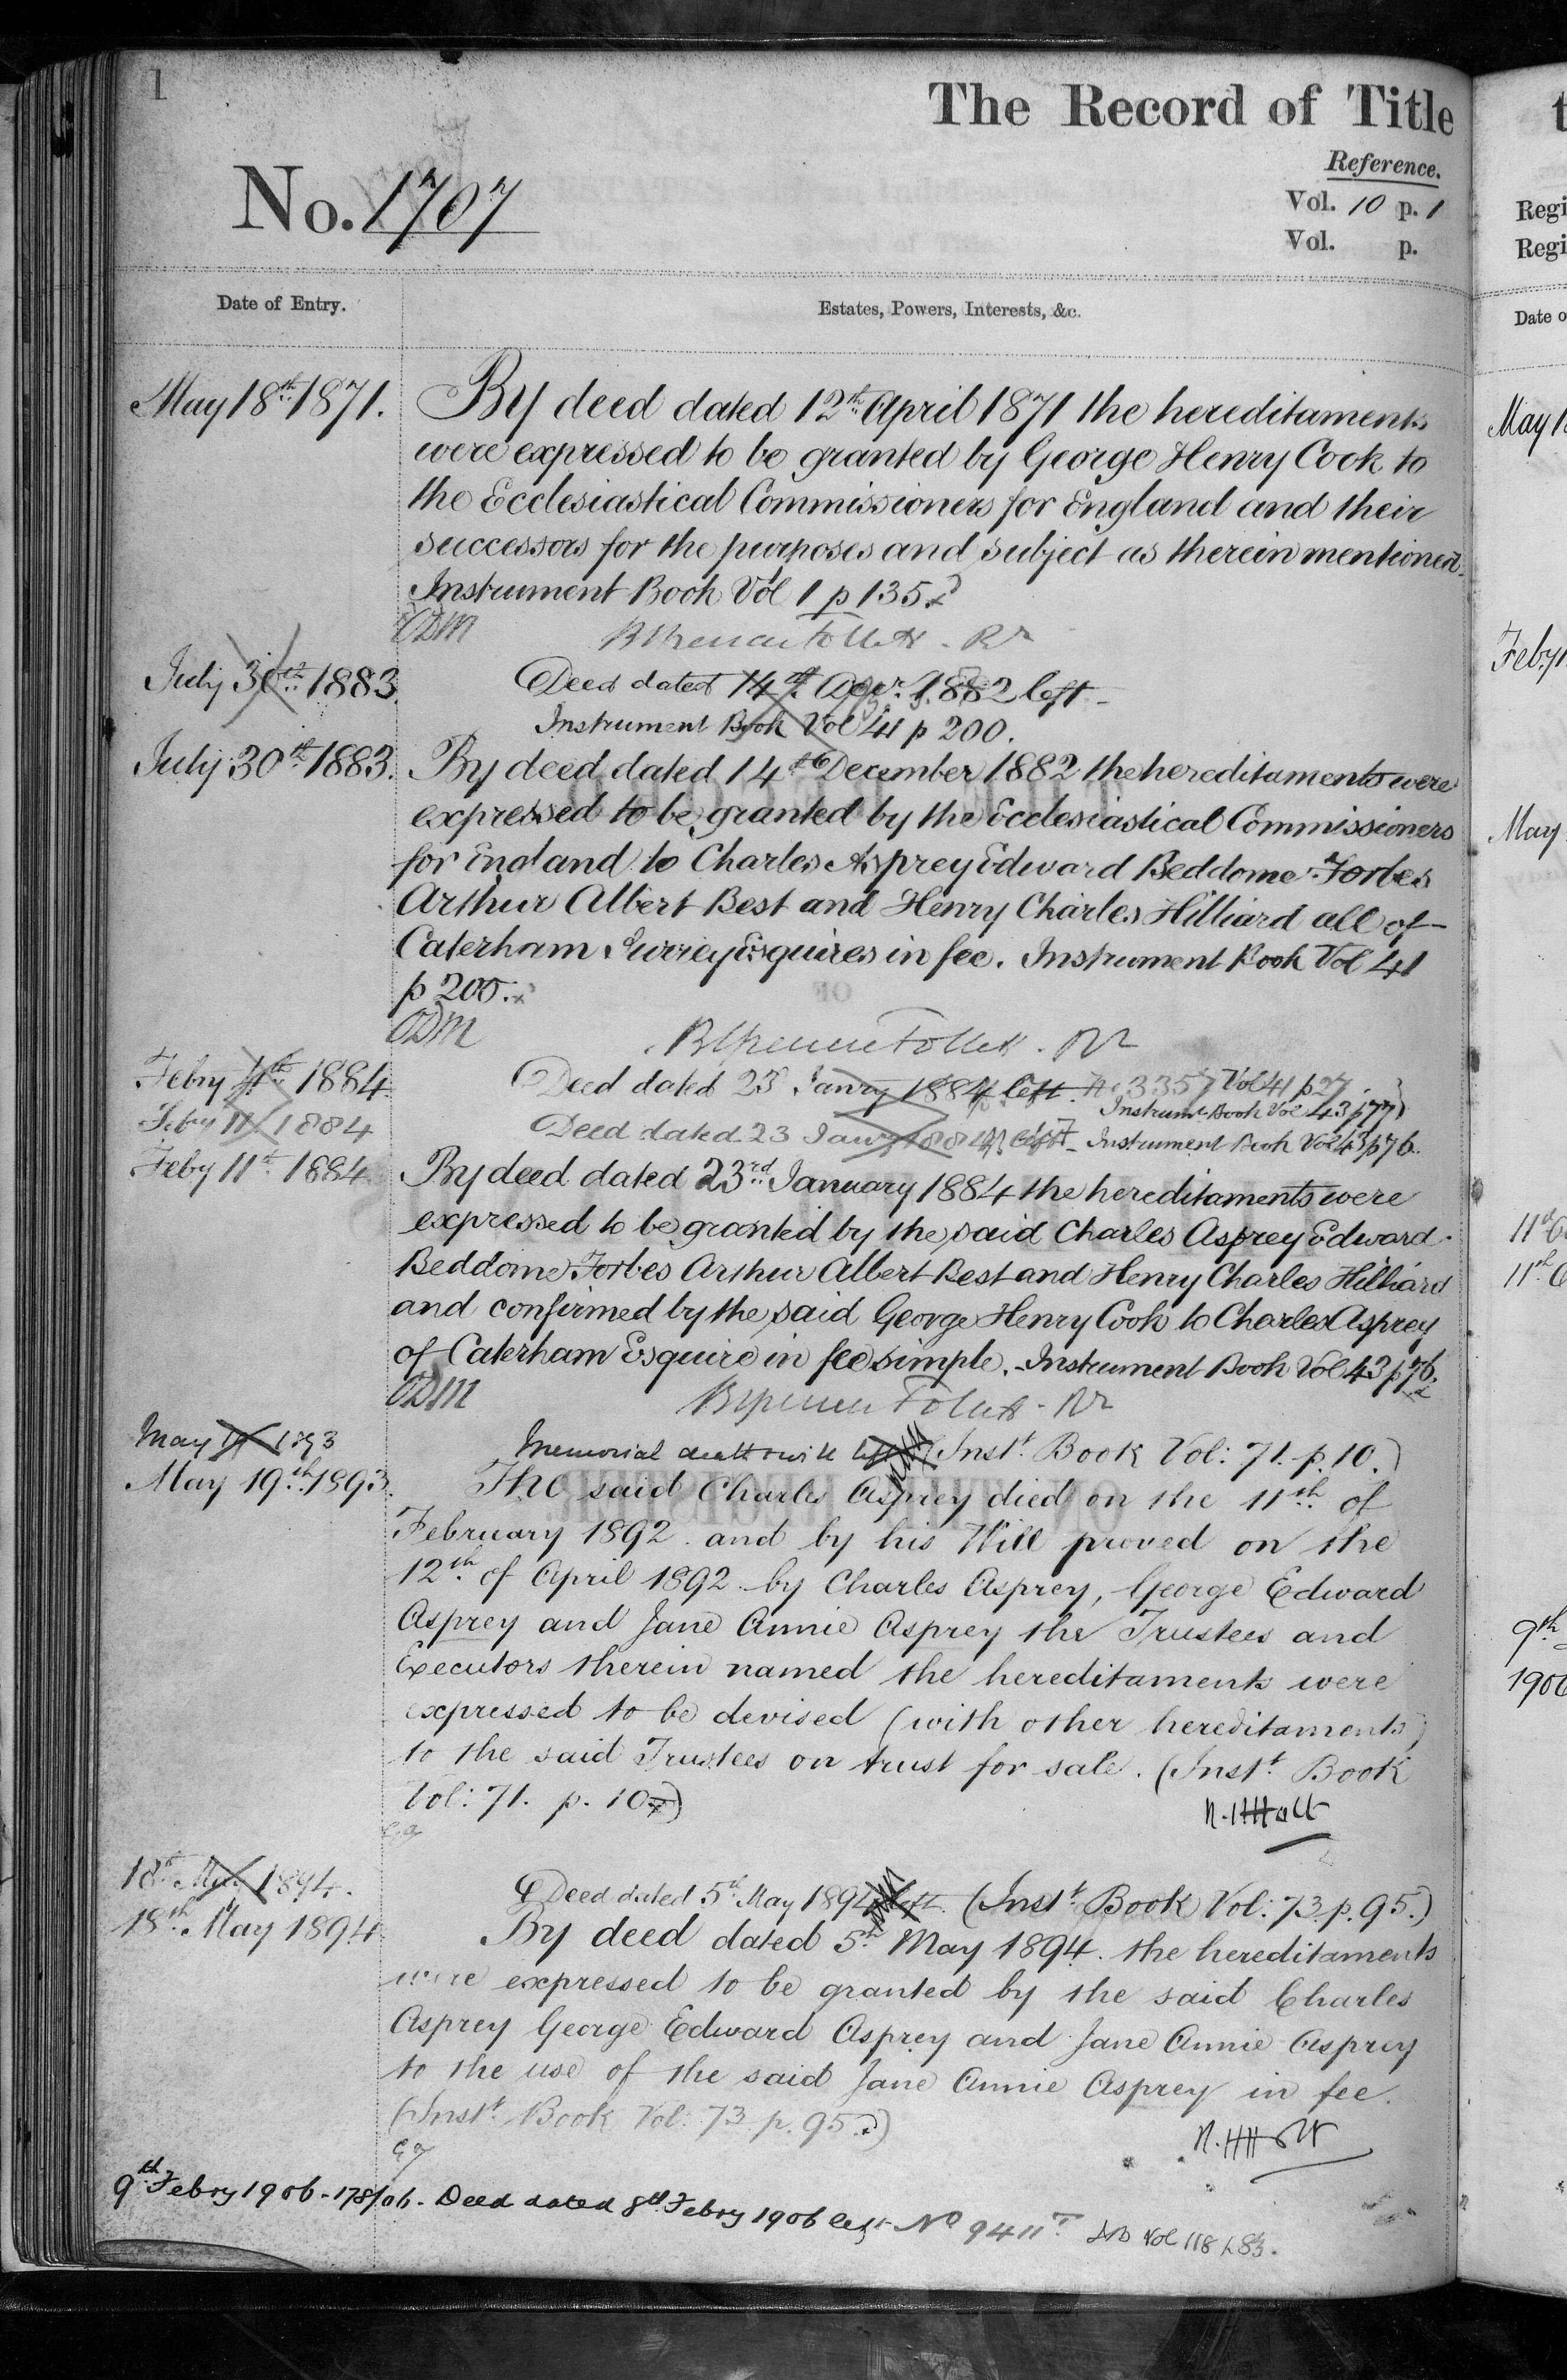 1
The Record of Title
Reference.
No. 1707
Vol. 10 p. 1
Vol. p.
Date of Entry.
Estates, Powers, Interests, &c.
May 18th 1871.
By deed dated 12th April 1871 the hereditaments
were expressed to be granted by George Henry Cook to
the Ecclesiastical Commissioners for England and their
successors for the purposes and subject as therein mentioned.
Instrument Book Vol 1 p 135
ODM
July 30th 1883.
Deed dated 14th 1882 left
Instrument Book Vol 41 p 200.
July 30th 1883.
By deed dated 14th December 1882 the hereditaments were
expressed to be granted by the Ecclesiastical Commissioners
for England to Charles Asprey Edward Beddome Forbes
Arthur Albert Best and Henry Charles Hilliard all of
Caterham Surrey Esquires in fee. Instrument Book Vol 41
p 200.
ODM
Febry 4th 1884
Deed dated 23 Janry 1884 left No 3357 Vol 41 p 27
Instrumt Book Vol 43 p 77
Feby 11 1884
Deed dated 23 Janry 1884 left - Instrument Book Vol 43 p 76.
Feby 11th 1884
By deed dated 23rd January 1884 the hereditaments were
expressed to be granted by the said Charles Asprey Edward
Beddome Forbes Arthur Albert Best and Henry Charles Hilliard
and confirmed by the said George Henry Cook to Charles Asprey
of Caterham Esquire in fee simple. Instrument Book Vol 43 p 76.
ODM
May 1893
Memorial death & will left (Instt Book Vol: 71. p. 10.)
May 19th 1893.
The said Charles Asprey died on the 11th of
February 1892 and by his Will proved on the
12th of April 1892 by Charles Asprey, George Edward
Asprey and Jane Annie Asprey the Trustees and
Executors therein named the hereditaments were
expressed to be devised (with other hereditaments)
to the said Trustees on trust for sale. (Instt Book
Vol: 71. p. 10)
N. H Holt
18th May 1894.
Deed dated 5th May 1894 left. (Instt Book Vol: 73. p. 95.)
18th May 1894
By deed dated 5th May 1894 the hereditaments
were expressed to be granted by the said Charles
Asprey George Edward Asprey and Jane Annie Asprey
to the use of the said Jane Annie Asprey in fee.
(Instt Book Vol: 73 p. 95.)
N. H Holt
9th Febry 1906 - 178/06 - Deed dated 8th Febry 1906 left No 9411 Vol 118 p. 83.
t
Regi
Regi
Date o
May 1
Feby 1
May
11th
11th
9th
1906